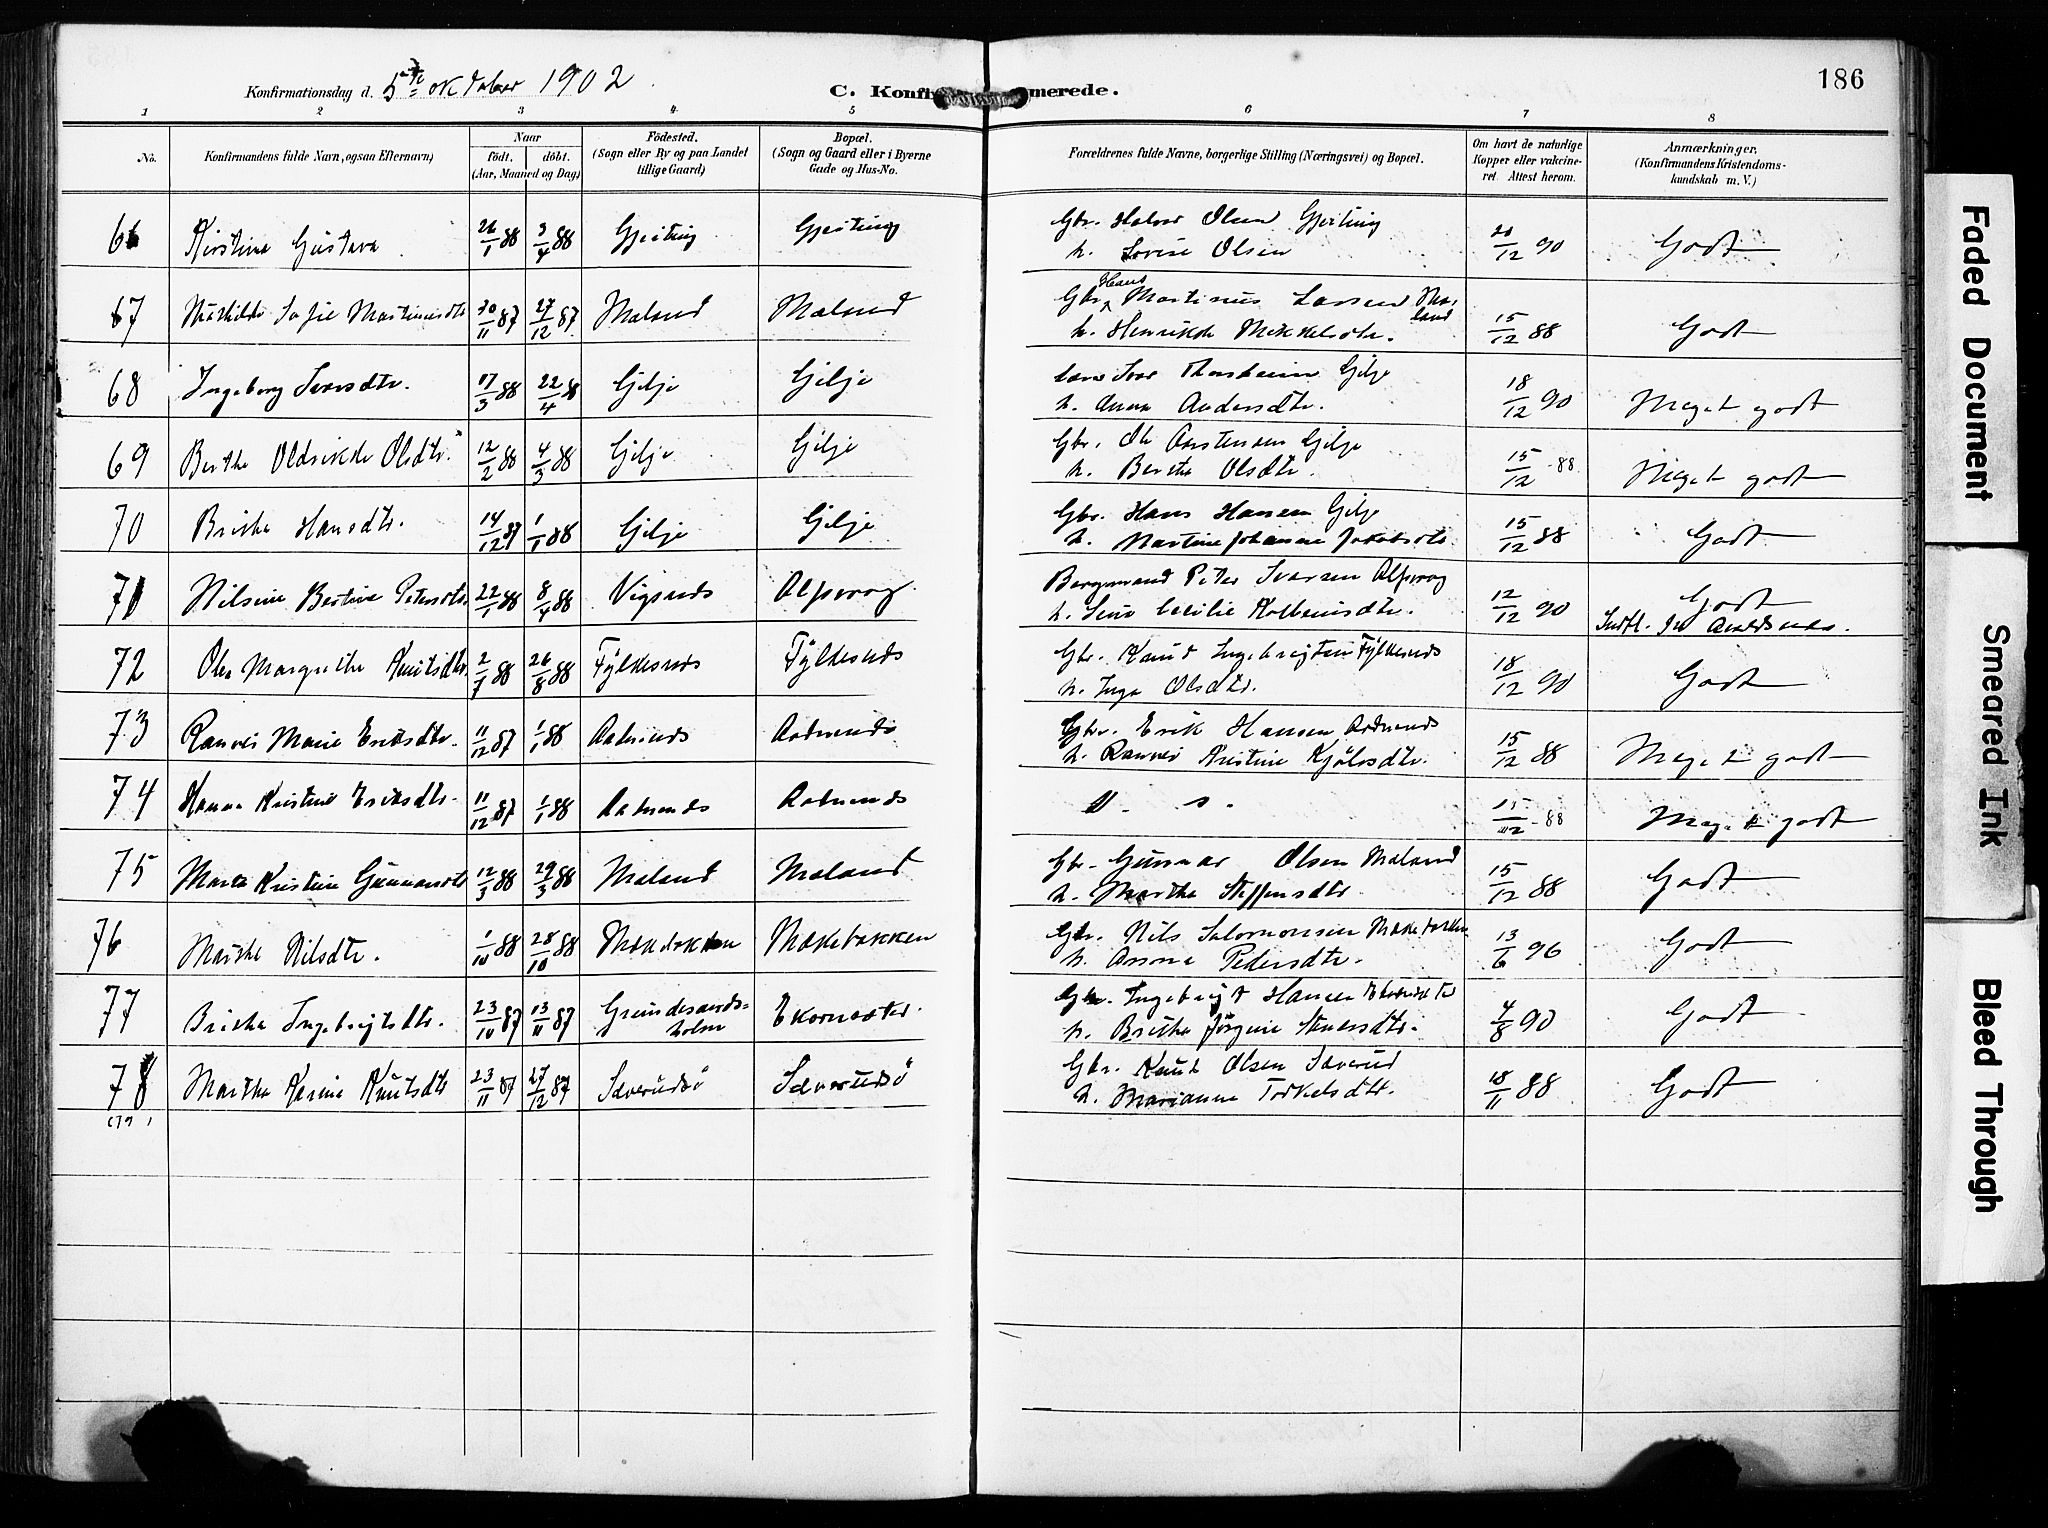 186
Konfirmationsdag d. 5te oktober 1902
C. Konfirmerede.
1 2 3 4 5 6 7 8
No. Konfirmandens fulde Navn, ogsaa Efternavn) Naar født. døbt. (Aar, Maaned og Dag) Fødested. (Sogn eller By og paa Landet tillige Gaard) Bopæl. (Sogn og Gaard eller i Byerne Gade og Hus-No. Forældrenes fulde Navne, borgerlige Stilling (Næringsvei) og Bopæl. Om havt de naturlige Kopper eller vaccineret. Attest herom. Anmærkninger, (Konfirmandens Kristendomskundskab m. V.)
66 Kirstine Gustava 26/1 88 3/4 88 Gjesting Gjesting Gbr. Halvor Olsen Gjesting
h. Lovise Olsen 20/12 90 Godt
67 Mathilde Sofie Martinusdtr 30/11 87 27/12 87 Maland Maland Gbr. Hans Martinus Larsen Maland
h. Henrikke Mikkelsdtr. 15/12 88 Godt
68 Ingeborg Ivarsdtr. 17/3 88 22/4 88 Gilje Gilje Ivar Thorsheim Gilje
h. Anna Andersdtr. 18/12 90 Meget godt
69 Berthe Oldrikke Olsdtr. 12/2 88 4/3 88 Gilje Gilje Gbr. Ole Aastensen Gilje
h. Bertha Olsdtr. 15/12 - 88 Meget godt
70 Britha Hansdtr. 14/12 87 1/1 88 Gilje Gilje Gbr. Hans Hansen Gilje
h. Martine Johanne Jakobsdtr 15/12 88 Godt
71 Nilsine Bertine Petersdtr. 22/1 88 8/4 88 Vigsnes Alfsvog Bergmand Peter Ivarsen Alfsvog
h. Sine Cecilie Kolbeinsdtr. 12/12 90 Godt
Indfl. Avaldsnes.
72 Olea Margrethe Knutsdtr. 2/7 88 26/8 88 Fylkesnes Fylkesnes Gbr. Knud Ingebrigtsen Fylkesnes
h. Inga Olsdtr. 18/12 90 Godt
73 Ranvei Marie Eriksdtr. 11/12 87 1/1 88 Aadnenes Aadnenes Gbr. Erik Hansen Aadnenes
h. Ranvei Kristine Kjølvsdtr. 15/12 88 Meget godt
74 Hanna Kristine Eriksdtr. 11/12 87 1/1 88 Aadnenes Aadnenes D. s. 15/12 - 88 Meget godt
75 Marta Kristine Gunnarsdtr 12/3 88 29/3 88 Maland Maland Gbr. Gunnar Olsen Maland
h. Martha Steffensdtr. 15/12 88 Godt
76 Marthe Nilsdtr. 1/10 88 28/10 88 Mækebakken Mækebakken Gbr. Nils Salomonsen Mækebakken
h. Anna Pedersdtr. 13/6 96 Godt
77 Britha Ingebrigtsdtr. 23/10 87 13/11 87 Grundesundsholm Ekornester. Gbr. Ingebrigt Hansen
h. Britha Jørgine 4/8 90 Godt
78 Martha Karine Knutsdtr 23/11 87 27/12 87 Sæverudsø Sæverudsø Gbr. Knut Olsen Sæverud
h. Marianne Torkelsdtr. 18/11 88 Godt
Faded Document
Smeared Ink
Bleed Through